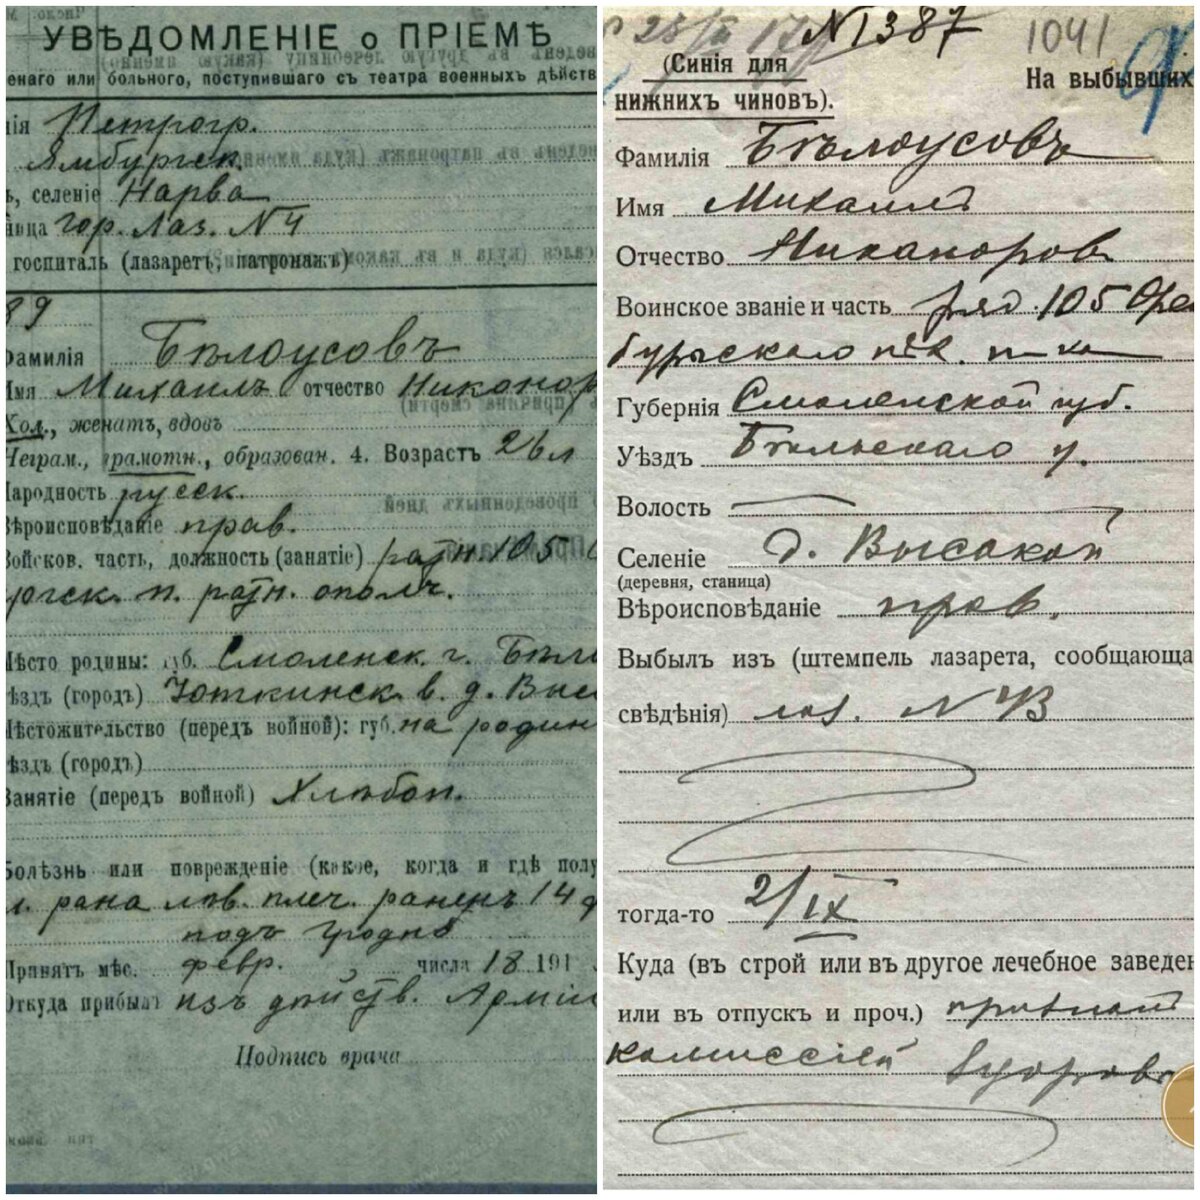 УВѢДОМЛЕНІЕ о ПРІЕМѢ
енаго или больного, поступившаго съ театра военныхъ дѣйств
нія Петрогр.
Ямбургск.
ь, селеніе Нарва
ница гор. Лаз. №4
госпиталь (лазаретъ, патронажъ)
89
Фамилія Бѣлоусовъ
Имя Михаилъ отчество Никонор
Хол., женатъ, вдовъ
Неграм., грамотн., образован. 4. Возрастъ 26 л
Народность русск.
Вѣроисповѣданіе прав.
Войсков. часть, должность (занятіе) ратн. 105
ургск. п. ратн. ополч.
Мѣсто родины: губ. Смоленск. г. Бѣл
ѣздъ (городъ) Чоткинск. в. д. Выс
Мѣстожительство (передъ войной): губ. на родин
ѣздъ (городъ)
Занятіе (передъ войной) Хлѣбоп.
Болѣзнь или поврежденіе (какое, когда и гдѣ полу
рана лѣв. плеч. раненъ 14 ф
подъ Гродно
Принятъ мѣс. февр. числа 18 191
Откуда прибылъ изъ дѣйств. Арміи
Подпись врача
25/II 17
№1387
1041
(Синія для
нижнихъ чиновъ).
На выбывшихъ
Фамилія Бѣлоусовъ
Имя Михаилъ
Отчество Никаноров
Воинское званіе и часть ряд. 105 Орен
бургскаго пѣх. п-ка
Губернія Смоленской губ.
Уѣздъ Бѣльскаго у.
Волость
Селеніе д. Высокой
(деревня, станица)
Вѣроисповѣданіе прав.
Выбылъ изъ (штемпель лазарета, сообщающа
свѣдѣнія) лаз. №
тогда-то 2/IX
Куда (въ строй или въ другое лечебное заведен
или въ отпускъ и проч.) признан
комиссіей здоров